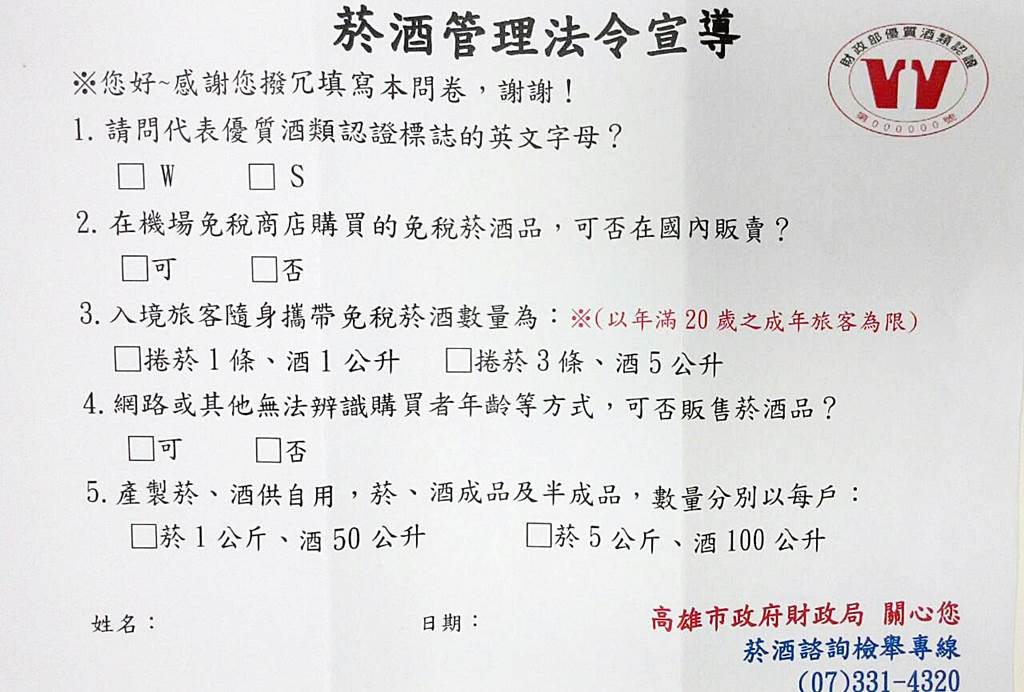 菸酒管理法令宣導
財政部優質酒類認證
W
第000000號
※您好~感謝您撥冗填寫本問卷，謝謝！
1. 請問代表優質酒類認證標誌的英文字母？
□ W □ S
2. 在機場免稅商店購買的免稅菸酒品，可否在國內販賣？
□可 □否
3. 入境旅客隨身攜帶免稅菸酒數量為：※(以年滿 20 歲之成年旅客為限)
□捲菸 1 條、酒 1 公升 □捲菸 3 條、酒 5 公升
4. 網路或其他無法辨識購買者年齡等方式，可否販售菸酒品？
□可 □否
5. 產製菸、酒供自用，菸、酒成品及半成品，數量分別以每戶：
□菸 1 公斤、酒 50 公升 □菸 5 公斤、酒 100 公升
姓名： 日期：
高雄市政府財政局 關心您
菸酒諮詢檢舉專線
(07)331-4320